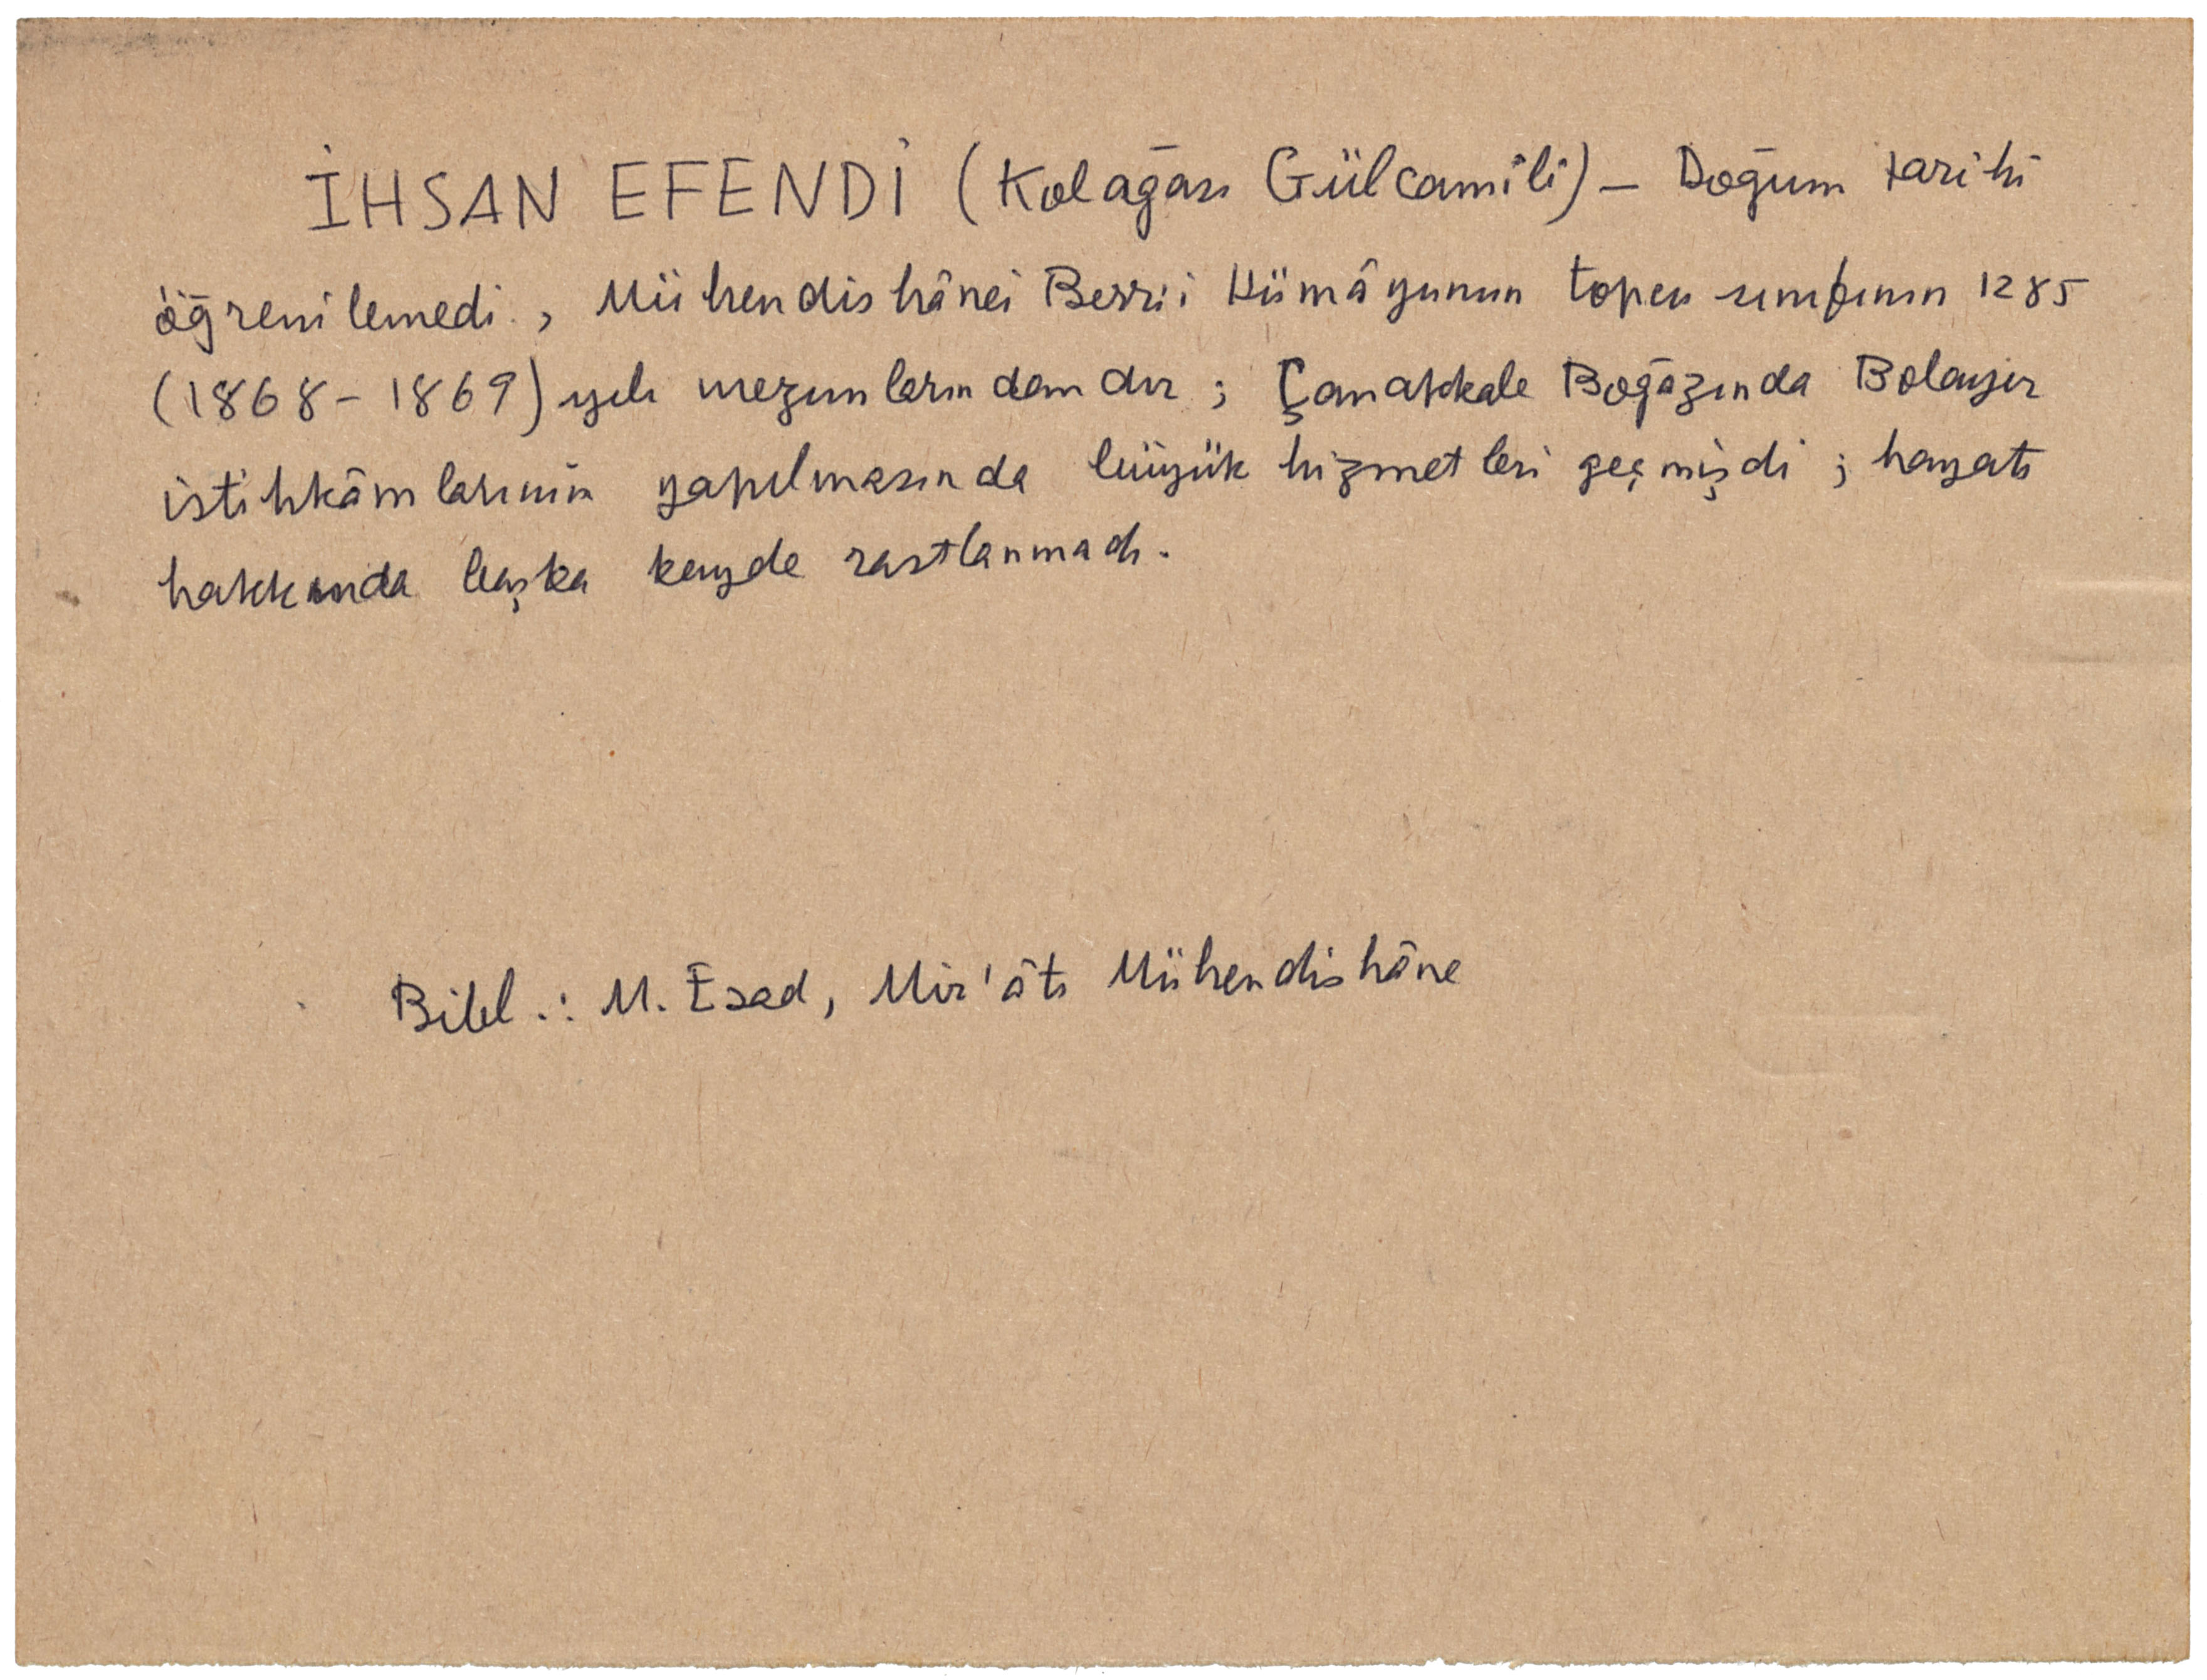 İHSAN EFENDİ (Kolağası Gülcamili) – Doğum tarihi
öğrenilemedi, Mühendishânei Berrii Hümâyunun topcu sınıfının 1285
(1868-1869) yılı mezunlarındandır; Çanakkale Boğazında Bolayır
istihkâmlarının yapılmasında büyük hizmetleri geçmişdi; hayatı
hakkında başka kayde rastlanmadı.
Bibl.: M. Esad, Mir'âtı Mühendishâne